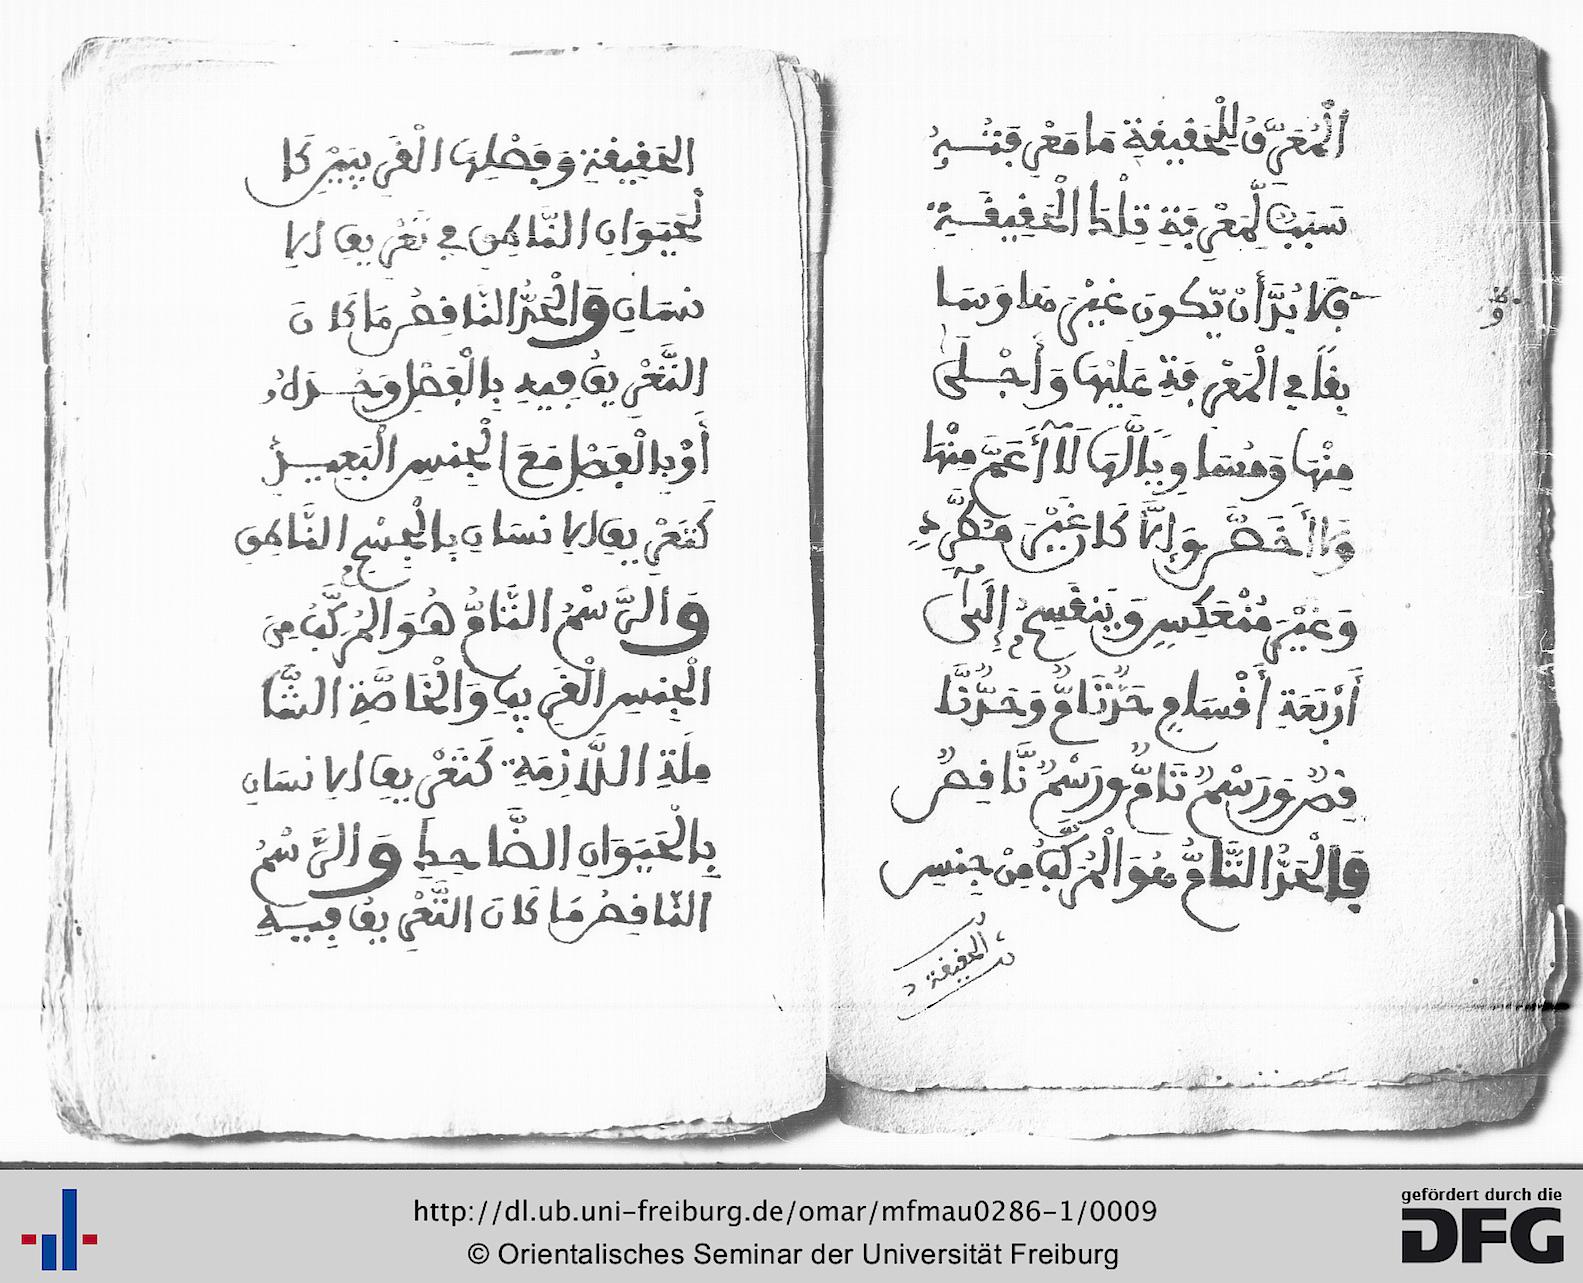 الْمُعَرِّفُ لِلْحَقِيقَةِ مَا مَعْرِفَتُــهُ
سَبَبٌ لِّمَعْرِفَةِ تِلْكَ الْحَقِيقَــةِ
فَلَا بُدَّ أَنْ يَّكُونَ غَيْرَهَا وَسَا
بِقًا فِي الْمَعْرِفَةِ عَلَيْهَا وَأَجْــلَى
مِنْهَا وَمُسَاوِيًا لَّهَا لَا أَعَمَّ مِنْهَا
وَلَا أَخَصَّ وَإِلَّا كَا غَيْرَ مُطَّرِدٍ
وَغَيْرَ مُنْعَكِسٍ وَيَنْقَسِمُ إِلَىٰ
أَرْبَعَةِ أَقْسَامٍ حَدٌّ تَامٌّ وَحَدٌّ نَّا
قِصٌ وَرَسْمٌ تَامٌّ وَرَسْمٌ نَّاقِصٌ
فَالْحَدُّ التَّامُّ هُوَ الْمُرَكَّبُ مِنْ جِنسِ
الحقيقة
الحَقِيقَةِ وَفَصْلِهَا الْقَرِيبَيْنِ كَا
لْحَيَوَانِ النَّاطِقِ فِي تَعْرِيفِ الإِ
نسَانِ وَالْحَدُّ النَّاقِصُ مَا كَانَ
التَّعْرِيفُ فِيهِ بِالْفَصْلِ وَحْــدَهُ
أَوْ بِالْفَصْلِ مَعَ الْجِنسِ الْبَعِيــدِ
كَتَعْرِيفِ الإنسَانِ بِالْجِسْمِ النَّاطِقِ
وَالرَّسْمُ التَّامُّ هُوَ المُرَكَّبُ مِنَ
الْجِنسِ الْقَرِيبِ وَالْخَاصَّةِ الشَّا
مِلَةِ اللَّازِمَةِ كَتَعْرِيفِ الإنسَانِ
بِالْحَيَوَانِ الضَّاحِكِ وَالرَّسْمُ
النَّاقِصُ مَا كَانَ التَّعْرِيفُ فِيــهِ
http://dl.ub.uni-freiburg.de/omar/mfmau0286-1/0009
© Orientalisches Seminar der Universität Freiburg
gefördert durch die
DFG